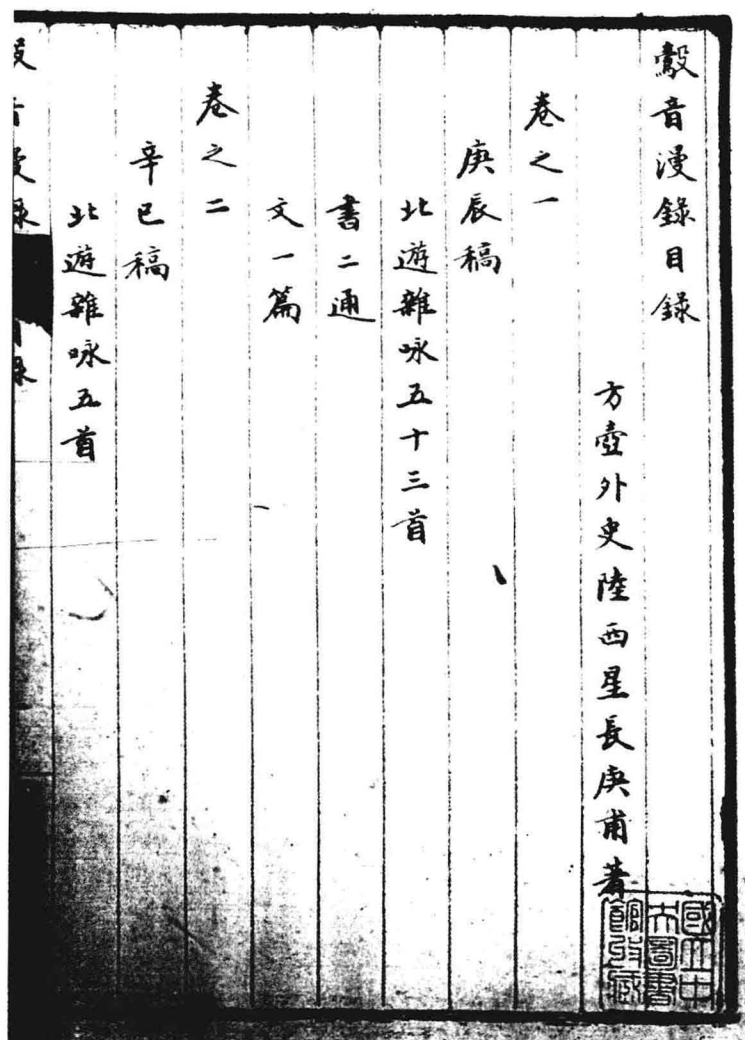 鷇音漫錄目錄
方壺外史陸西星長庚甫著
卷之一
庚辰稿
北遊雜咏五十三首
書二通
文一篇
卷之二
辛巳稿
北遊雜咏五首
國立中
央圖書
館收藏